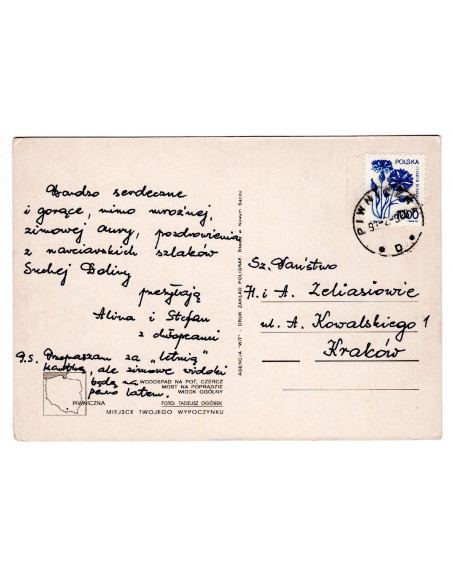 Bardzo serdeczne
i gorące, mimo mroźnej,
zimowej aury, pozdrowienia
z narciarskich szlaków
Suchej Doliny
przesyłają
Alina i Stefan
z chłopcami
P.S. Przepraszam za "letnią"
kartkę, ale zimowe widoki
będą na
pewno latem.
WODOSPAD NA POT. CZERCZ
MOST NA POPRADZIE
WIDOK OGÓLNY
PIWNICZNA
FOTO: TADEUSZ OGÓREK
MIEJSCE TWOJEGO WYPOCZYNKU
AGENCJA "WIT" - DRUK ZAKŁAD POLIGRAF.
Nowym Sączu
POLSKA
PIWNICZNA
D
Sz. Państwo
H. i A. Zeliasiowie
ul. A. Kowalskiego 1
Kraków